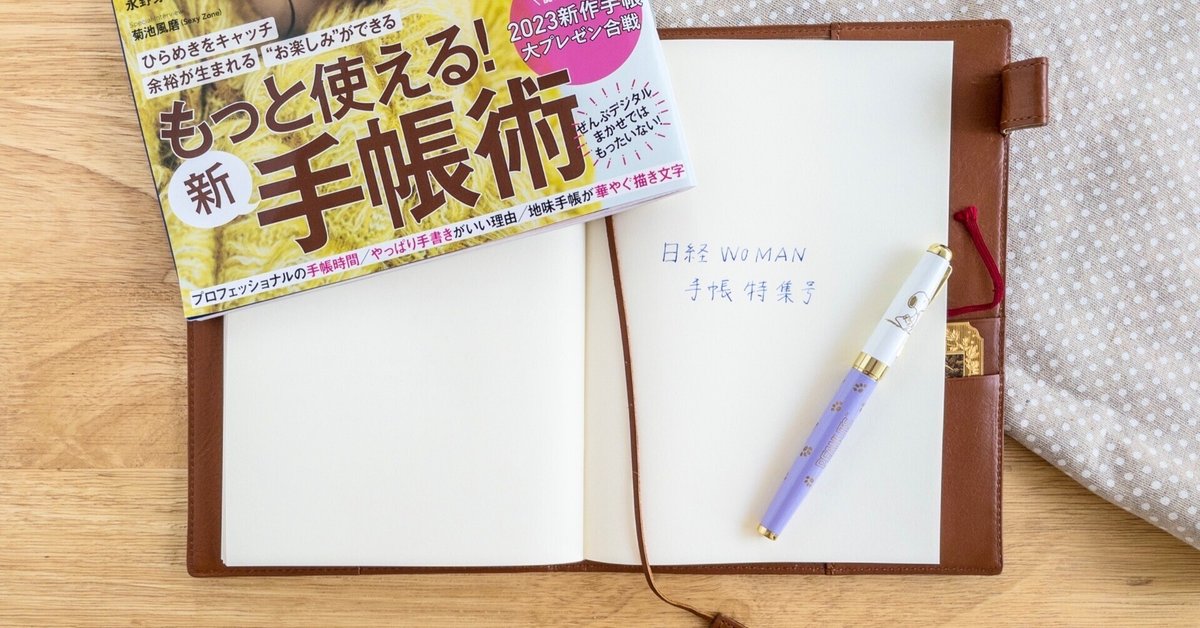 Special Interview
菊池風磨(Sexy Zone)
ひらめきをキャッチ
余裕が生まれる
“お楽しみ”ができる
もっと使える!
新
手帳術
2023新作手帳
大プレゼン合戦
ぜんぶデジタル
まかせでは
もったいない!
プロフェッショナルの手帳時間/やっぱり手書きがいい理由/地味手帳が華やぐ描き文字
日経 WOMAN
手帳 特集号